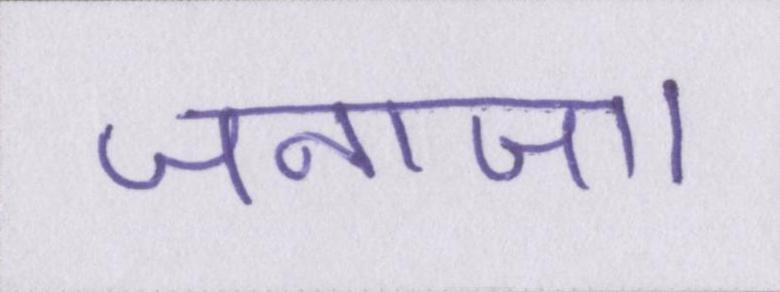 जनाजा।